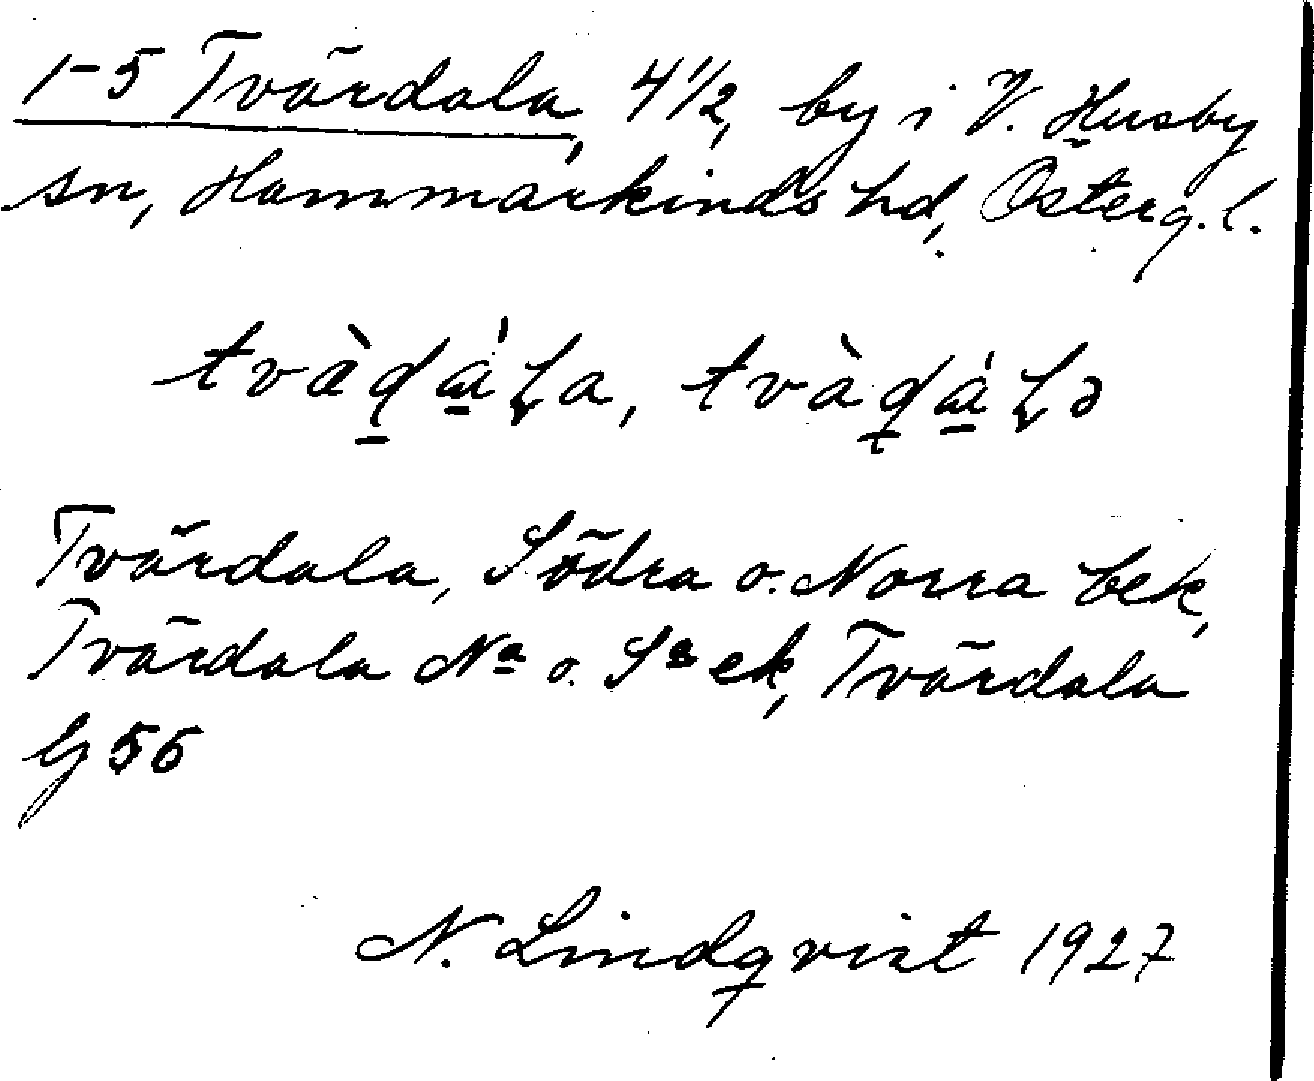 1-5 Tvärdala, 4 1/2, by i V. Husby
sn, Hammarkinds hd, Österg. l.
tvàḏáɽa, tvàḏáɽə
Tvärdala, Södra o. Norra bek,
Tvärdala Nª o. Sª ek, Tvärdala
G 56
N. Lindqvist 1927